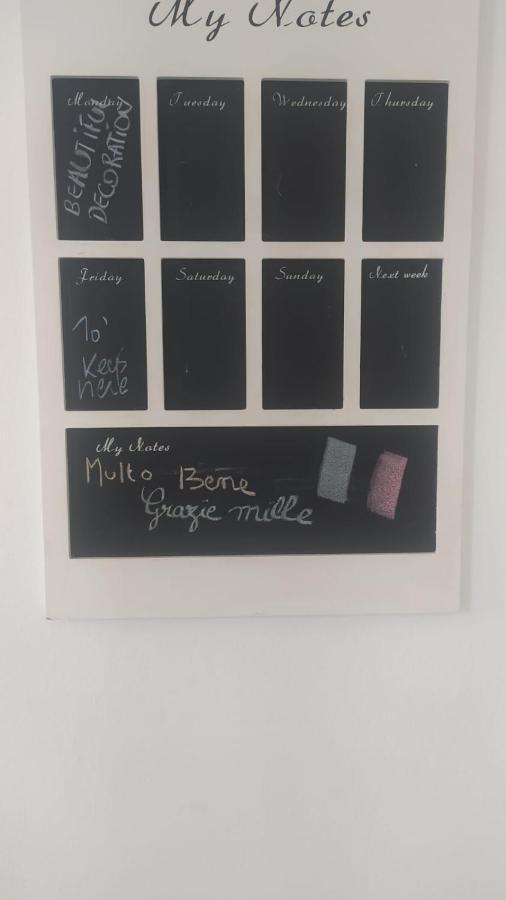 My Notes
Monday
BEAUTIFUL
DECORATION
Tuesday
Wednesday
Thursday
Friday
To'
Keep
here
Saturday
Sunday
Next week
My Notes
Multo Bene
Grazie mille